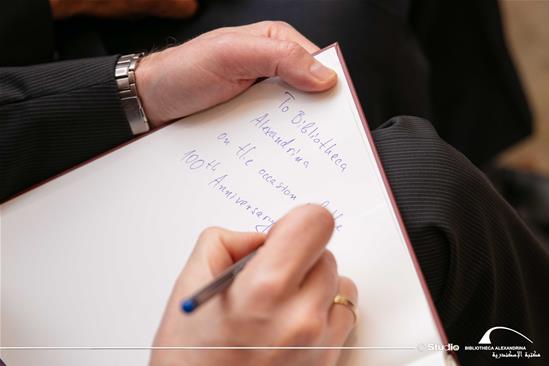 To Bibliotheca
Alexandrina
on the occasion of the
100th
Anniversary
Studio
BIBLIOTHECA ALEXANDRINA
مكتبة الإسكندرية